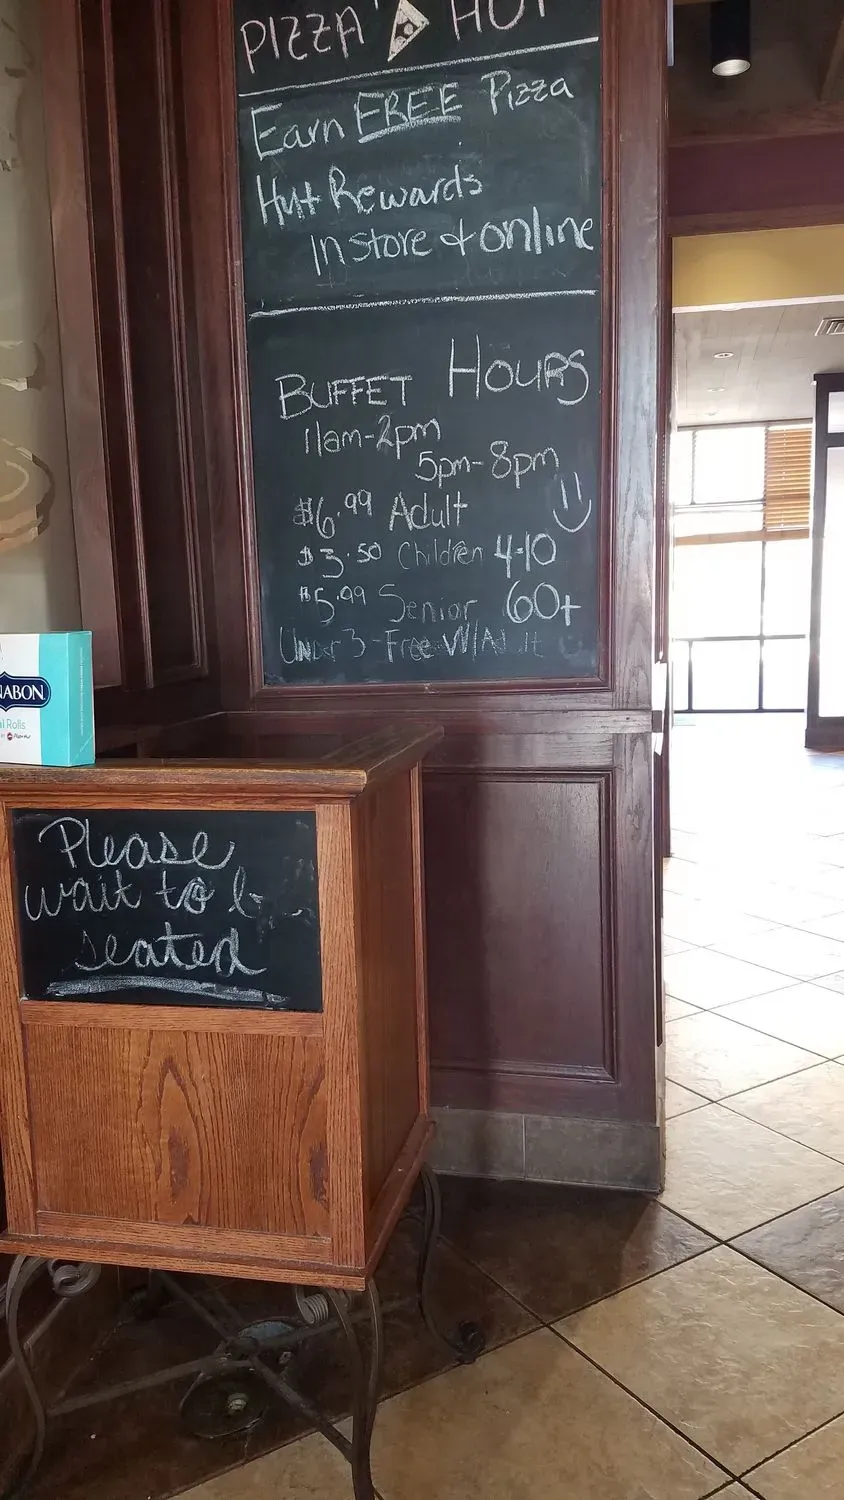 PIZZA HUT
Earn FREE Pizza
Hut Rewards
instore & online
BUFFET HOURS
11am-2pm
5pm-8pm
$6.99 Adult
$3.50 Children 4-10
$5.99 Senior 60+
Under 3-Free W/Adult
NABON
Rolls
Please
wait to
seated